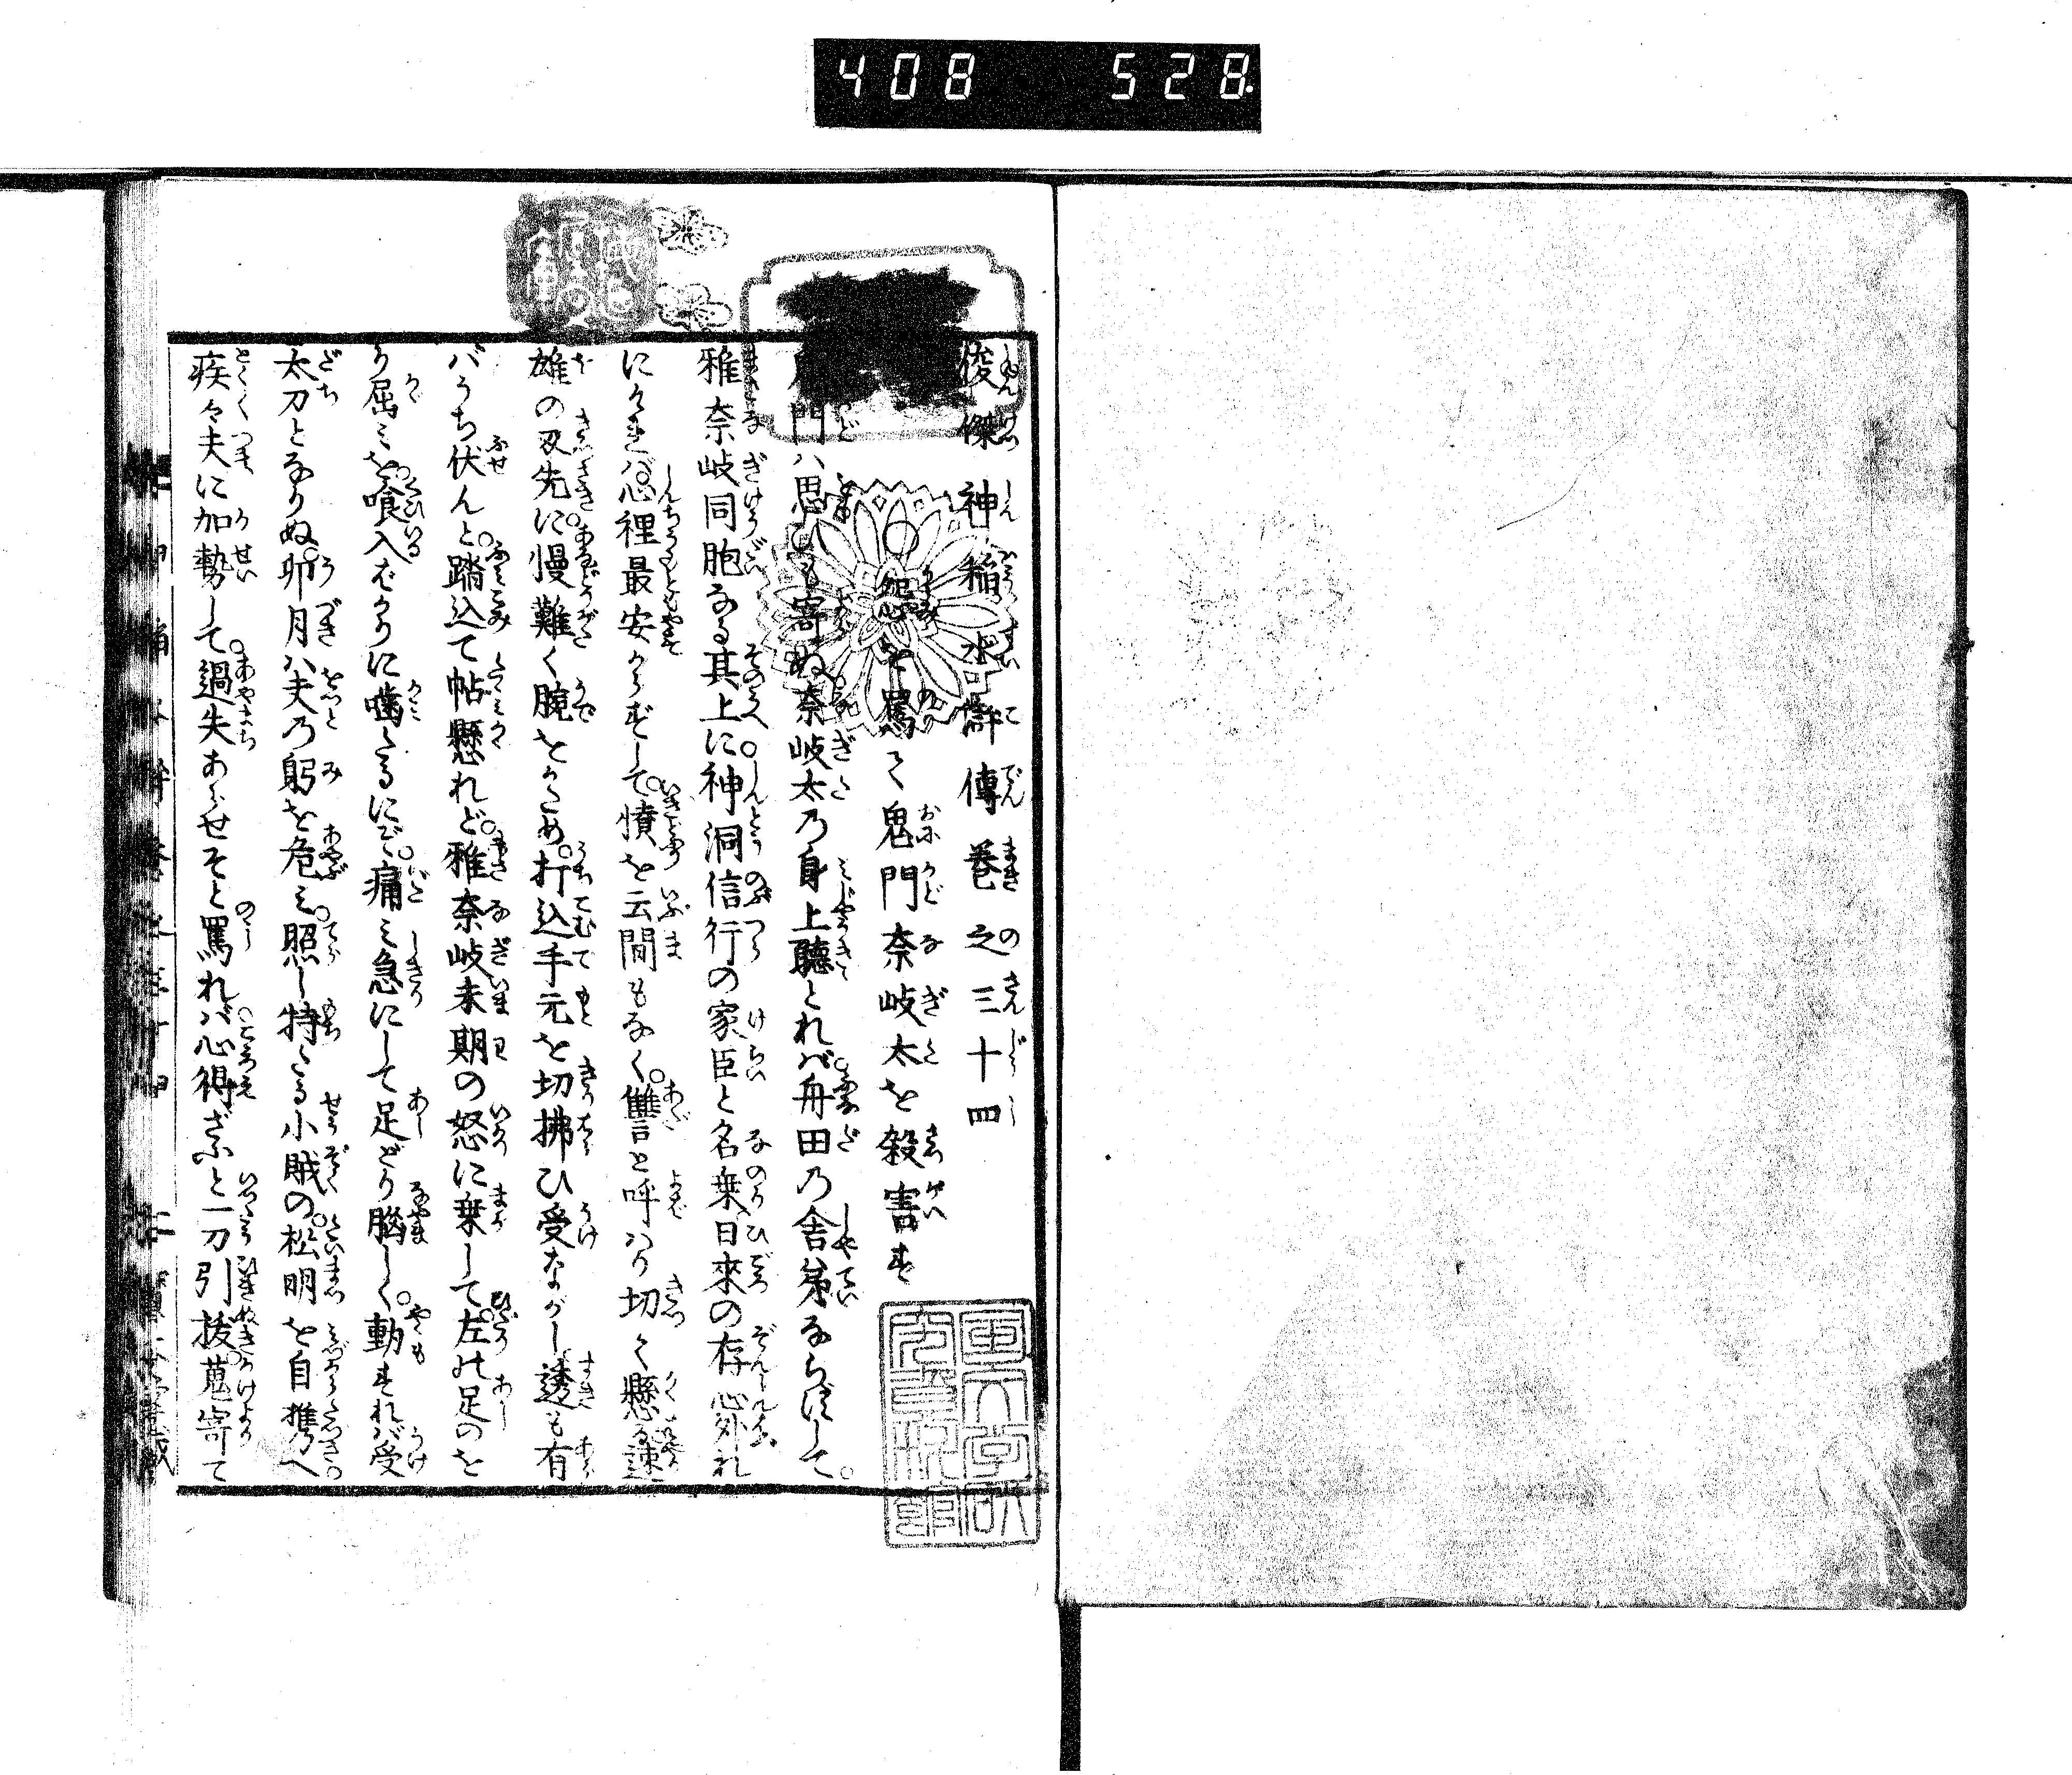 408 528
俊傑神稲水滸傳巻之三十四
○怨を罵て鬼門奈岐太を殺害す
門ハ思ひも寄ぬ奈岐太乃身上聴とれバ舟田乃舎弟ならずして。
雅奈岐同胞なる其上に。神洞信行の家臣と名乗日來の存心外れ
にけれバ心裡最安からずして。憤を云間もなく。讐と呼ハり切て懸る諫
雄の刄先に。慢難く腕をかため。打込手元を切拂ひ受ながし透も有
バうち伏んと。踏込て帖懸れど。雅奈岐未期の怒に乗して。左の足のを
り屈ミを。喰入ばかりに噛たるにぞ。痛ミ急にして足どり脳しく。動すれバ受
太刀となりぬ。卯月ハ夫乃躬を危ミ。照し特たる小賊の。松明を自携へ。
疾々夫に加勢して。過失あらせそと罵れバ。心得ざふと一刀引抜。蒐寄て